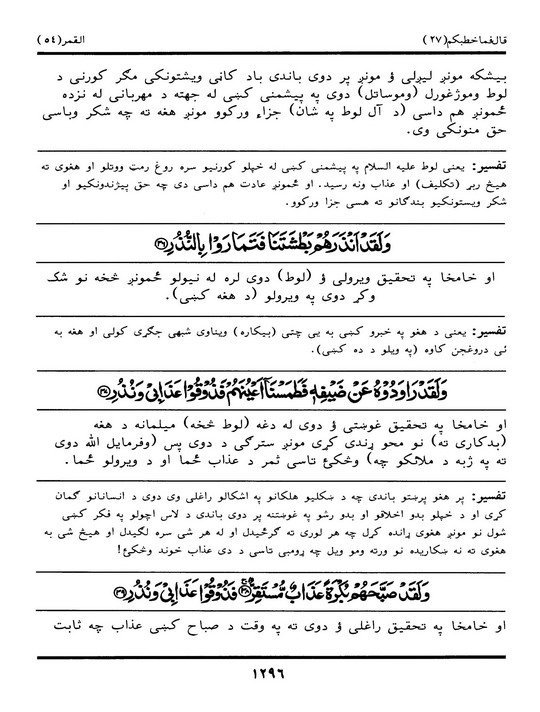 قال فما خطبكم (٢٧) القمر (٥٤)
بیشکه مونږ لیږلی ؤ مونږ پر دوی باندی باد کاڼی ویشتونکی مگر کورنی د
لوط وموژغورل (وموساتل) دوی په پیشمنی کښی له جهته د مهربانی له نزده
ځمونږ هم داسی (د آل لوط په شان) جزاء ورکوو مونږ هغه ته چه شکر وباسی
حق منونکی وی.
تفسیر: یعنی لوط علیه السلام په پیشمنی کښی له خپلو کورنیو سره روغ رمت ووتلو او هغوی ته
هیخ ربړ (تکلیف) او عذاب ونه رسید. او ځمونږ عادت هم داسی دی چه حق پیژندونکیو او
شکر ویستونکیو بندگانو ته هسی جزا ورکوو.
وَلَقَدْ اَنْذَرَهُمْ بَطْشَتَنَا فَتَمَارَوْا بِالنُّذُرِ ﴿٣٦﴾
او خامخا په تحقیق ویرولی ؤ (لوط) دوی لره له نیولو ځمونږ څخه نو شک
وکړ دوی په ویرولو (د هغه کښی).
تفسیر: یعنی د هغو په خبرو کښی به یی چتی (بیکاره) ویناوی شبهی جگړی کولی او هغه به
ئی دروغجن کاوه (په ویلو د ده کښی).
وَلَقَدْ رَاوَدُوْهُ عَنْ ضَيْفِهٖ فَطَمَسْنَآ اَعْيُنَهُمْ فَذُوْقُوْا عَذَابِيْ وَنُذُرِ ﴿٣٧﴾
او خامخا په تحقیق غوښتی ؤ دوی له دغه (لوط څخه) میلمانه د هغه
(بدکاری ته) نو محو ړندی کړی مونږ سترگی د دوی پس (وفرمایل الله دوی
ته په ژبه د ملائکو چه) وڅکئ تاسی ثمر د عذاب ځما او د ویرولو ځما.
تفسیر: پر هغو پرښتو باندی چه د ښکلیو هلکانو په اشکالو راغلی وی دوی د انسانانو گمان
کړی او د خپلو بدو اخلاقو او بدو رشو په غوښتنه پر دوی باندی د لاس اچولو په فکر کښی
شول نو مونږ هغوی ړانده کړل چه هر لوری ته گرځیدل او له هر شی سره لگیدل او هیخ شی به
هغوی ته نه ښکاریده نو ورته ومو ویل چه ړومبی تاسی د دی عذاب خوند وڅکئ!
وَلَقَدْ صَبَّحَهُمْ بُكْرَةً عَذَابٌ مُّسْتَقِرٌّ ﴿٣٨﴾ فَذُوْقُوْا عَذَابِيْ وَنُذُرِ ﴿٣٩﴾
او خامخا په تحقیق راغلی ؤ دوی ته په وقت د صباح کښی عذاب چه ثابت
١٢٩٦